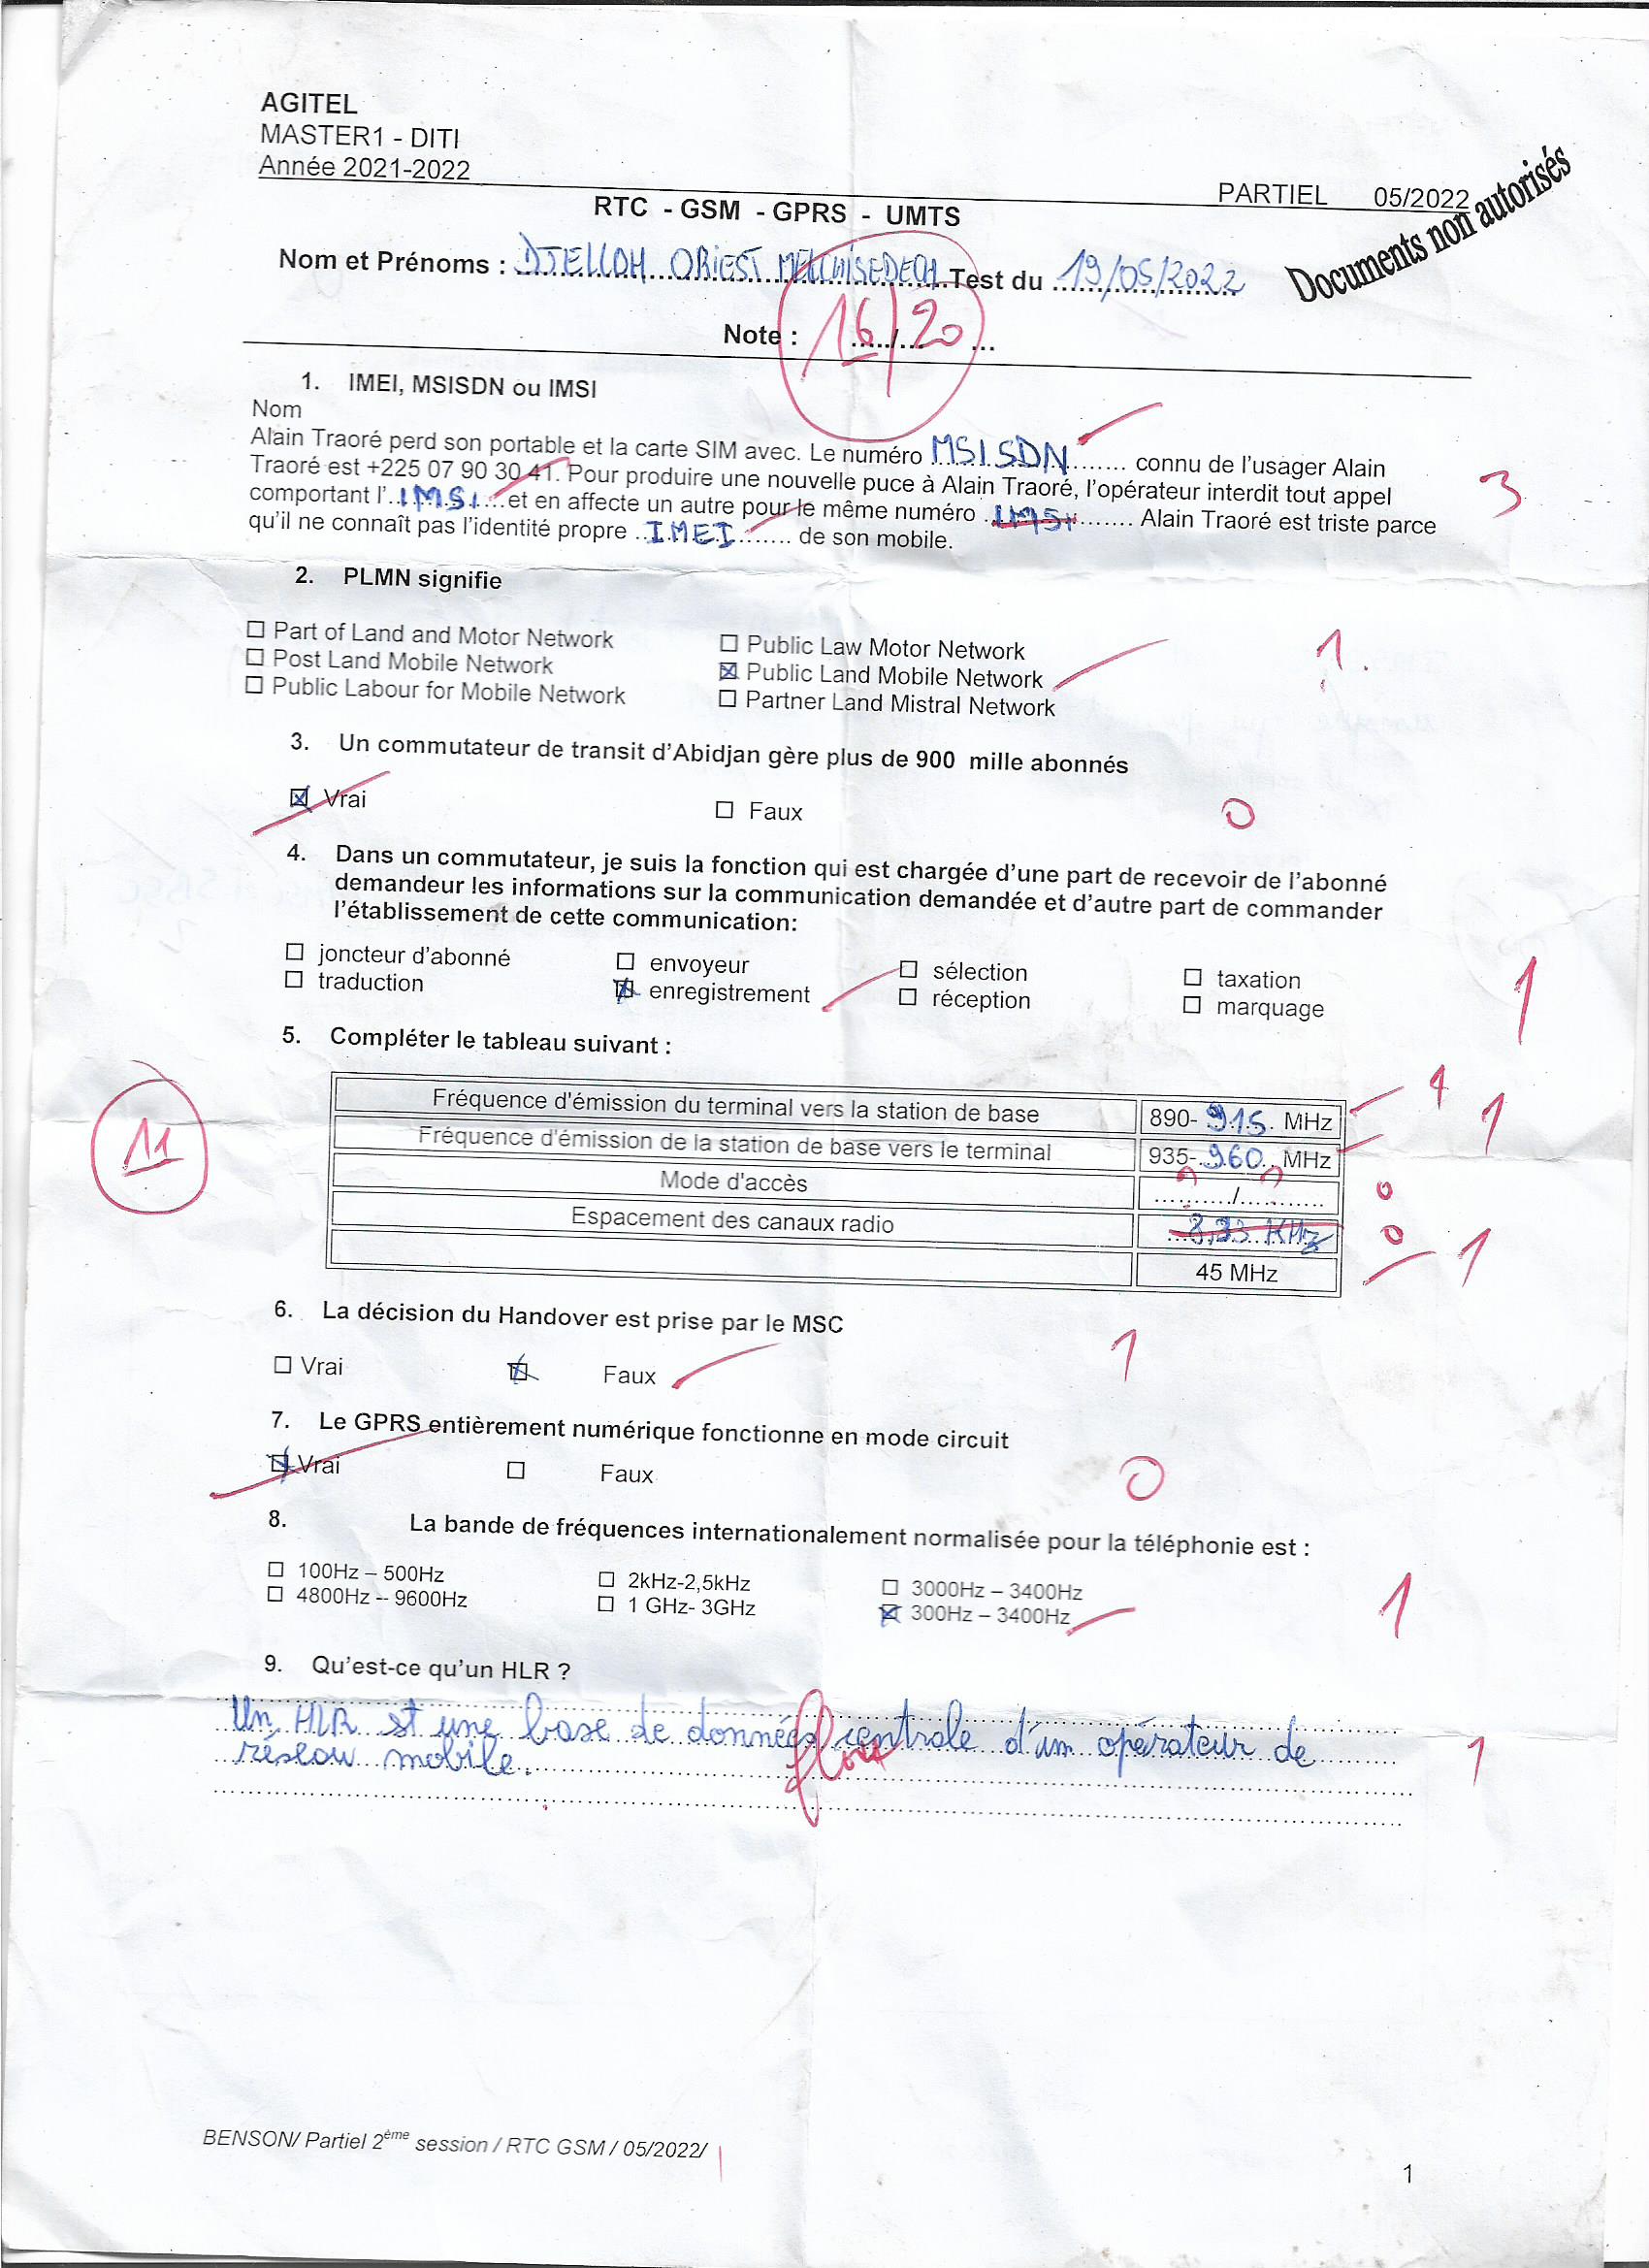 AGITEL
MASTER1 - DITI
Année 2021-2022
PARTIEL 05/2022
Documents non autorisés
RTC - GSM - GPRS - UMTS
Nom et Prénoms : DJELLOH ORIEST MELCHISEDECH Test du 19/05/2022
Note : 16/20
1. IMEI, MSISDN ou IMSI
Nom
Alain Traoré perd son portable et la carte SIM avec. Le numéro MSISDN connu de l'usager Alain
Traoré est +225 07 90 30 41. Pour produire une nouvelle puce à Alain Traoré, l'opérateur interdit tout appel
comportant l'IMSI et en affecte un autre pour le même numéro IMSI Alain Traoré est triste parce
qu'il ne connaît pas l'identité propre IMEI de son mobile.
3
2. PLMN signifie
☐ Part of Land and Motor Network ☐ Public Law Motor Network
☐ Post Land Mobile Network ☒ Public Land Mobile Network
☐ Public Labour for Mobile Network ☐ Partner Land Mistral Network
1.
3. Un commutateur de transit d'Abidjan gère plus de 900 mille abonnés
☒ Vrai ☐ Faux
0
4. Dans un commutateur, je suis la fonction qui est chargée d'une part de recevoir de l'abonné
demandeur les informations sur la communication demandée et d'autre part de commander
l'établissement de cette communication:
☐ joncteur d'abonné ☐ envoyeur ☐ sélection ☐ taxation
☐ traduction ☒ enregistrement ☐ réception ☐ marquage
1
5. Compléter le tableau suivant :
Fréquence d'émission du terminal vers la station de base 890- 915 MHz 1
Fréquence d'émission de la station de base vers le terminal 935- 960 MHz 1
Mode d'accès ........../.......... 0
Espacement des canaux radio 3,33 KHz 0
45 MHz 1
11
6. La décision du Handover est prise par le MSC
☐ Vrai ☒ Faux
1
7. Le GPRS entièrement numérique fonctionne en mode circuit
☒ Vrai ☐ Faux
0
8. La bande de fréquences internationalement normalisée pour la téléphonie est :
☐ 100Hz – 500Hz ☐ 2kHz-2,5kHz ☐ 3000Hz – 3400Hz
☐ 4800Hz -- 9600Hz ☐ 1 GHz- 3GHz ☒ 300Hz – 3400Hz
1
9. Qu'est-ce qu'un HLR ?
Un HLR est une base de données centrale d'un opérateur de
réseau mobile.
flou
1
BENSON/ Partiel 2ème session / RTC GSM / 05/2022/
1